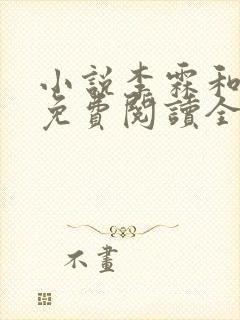 小說李霖和
免費閱讀全
不畫